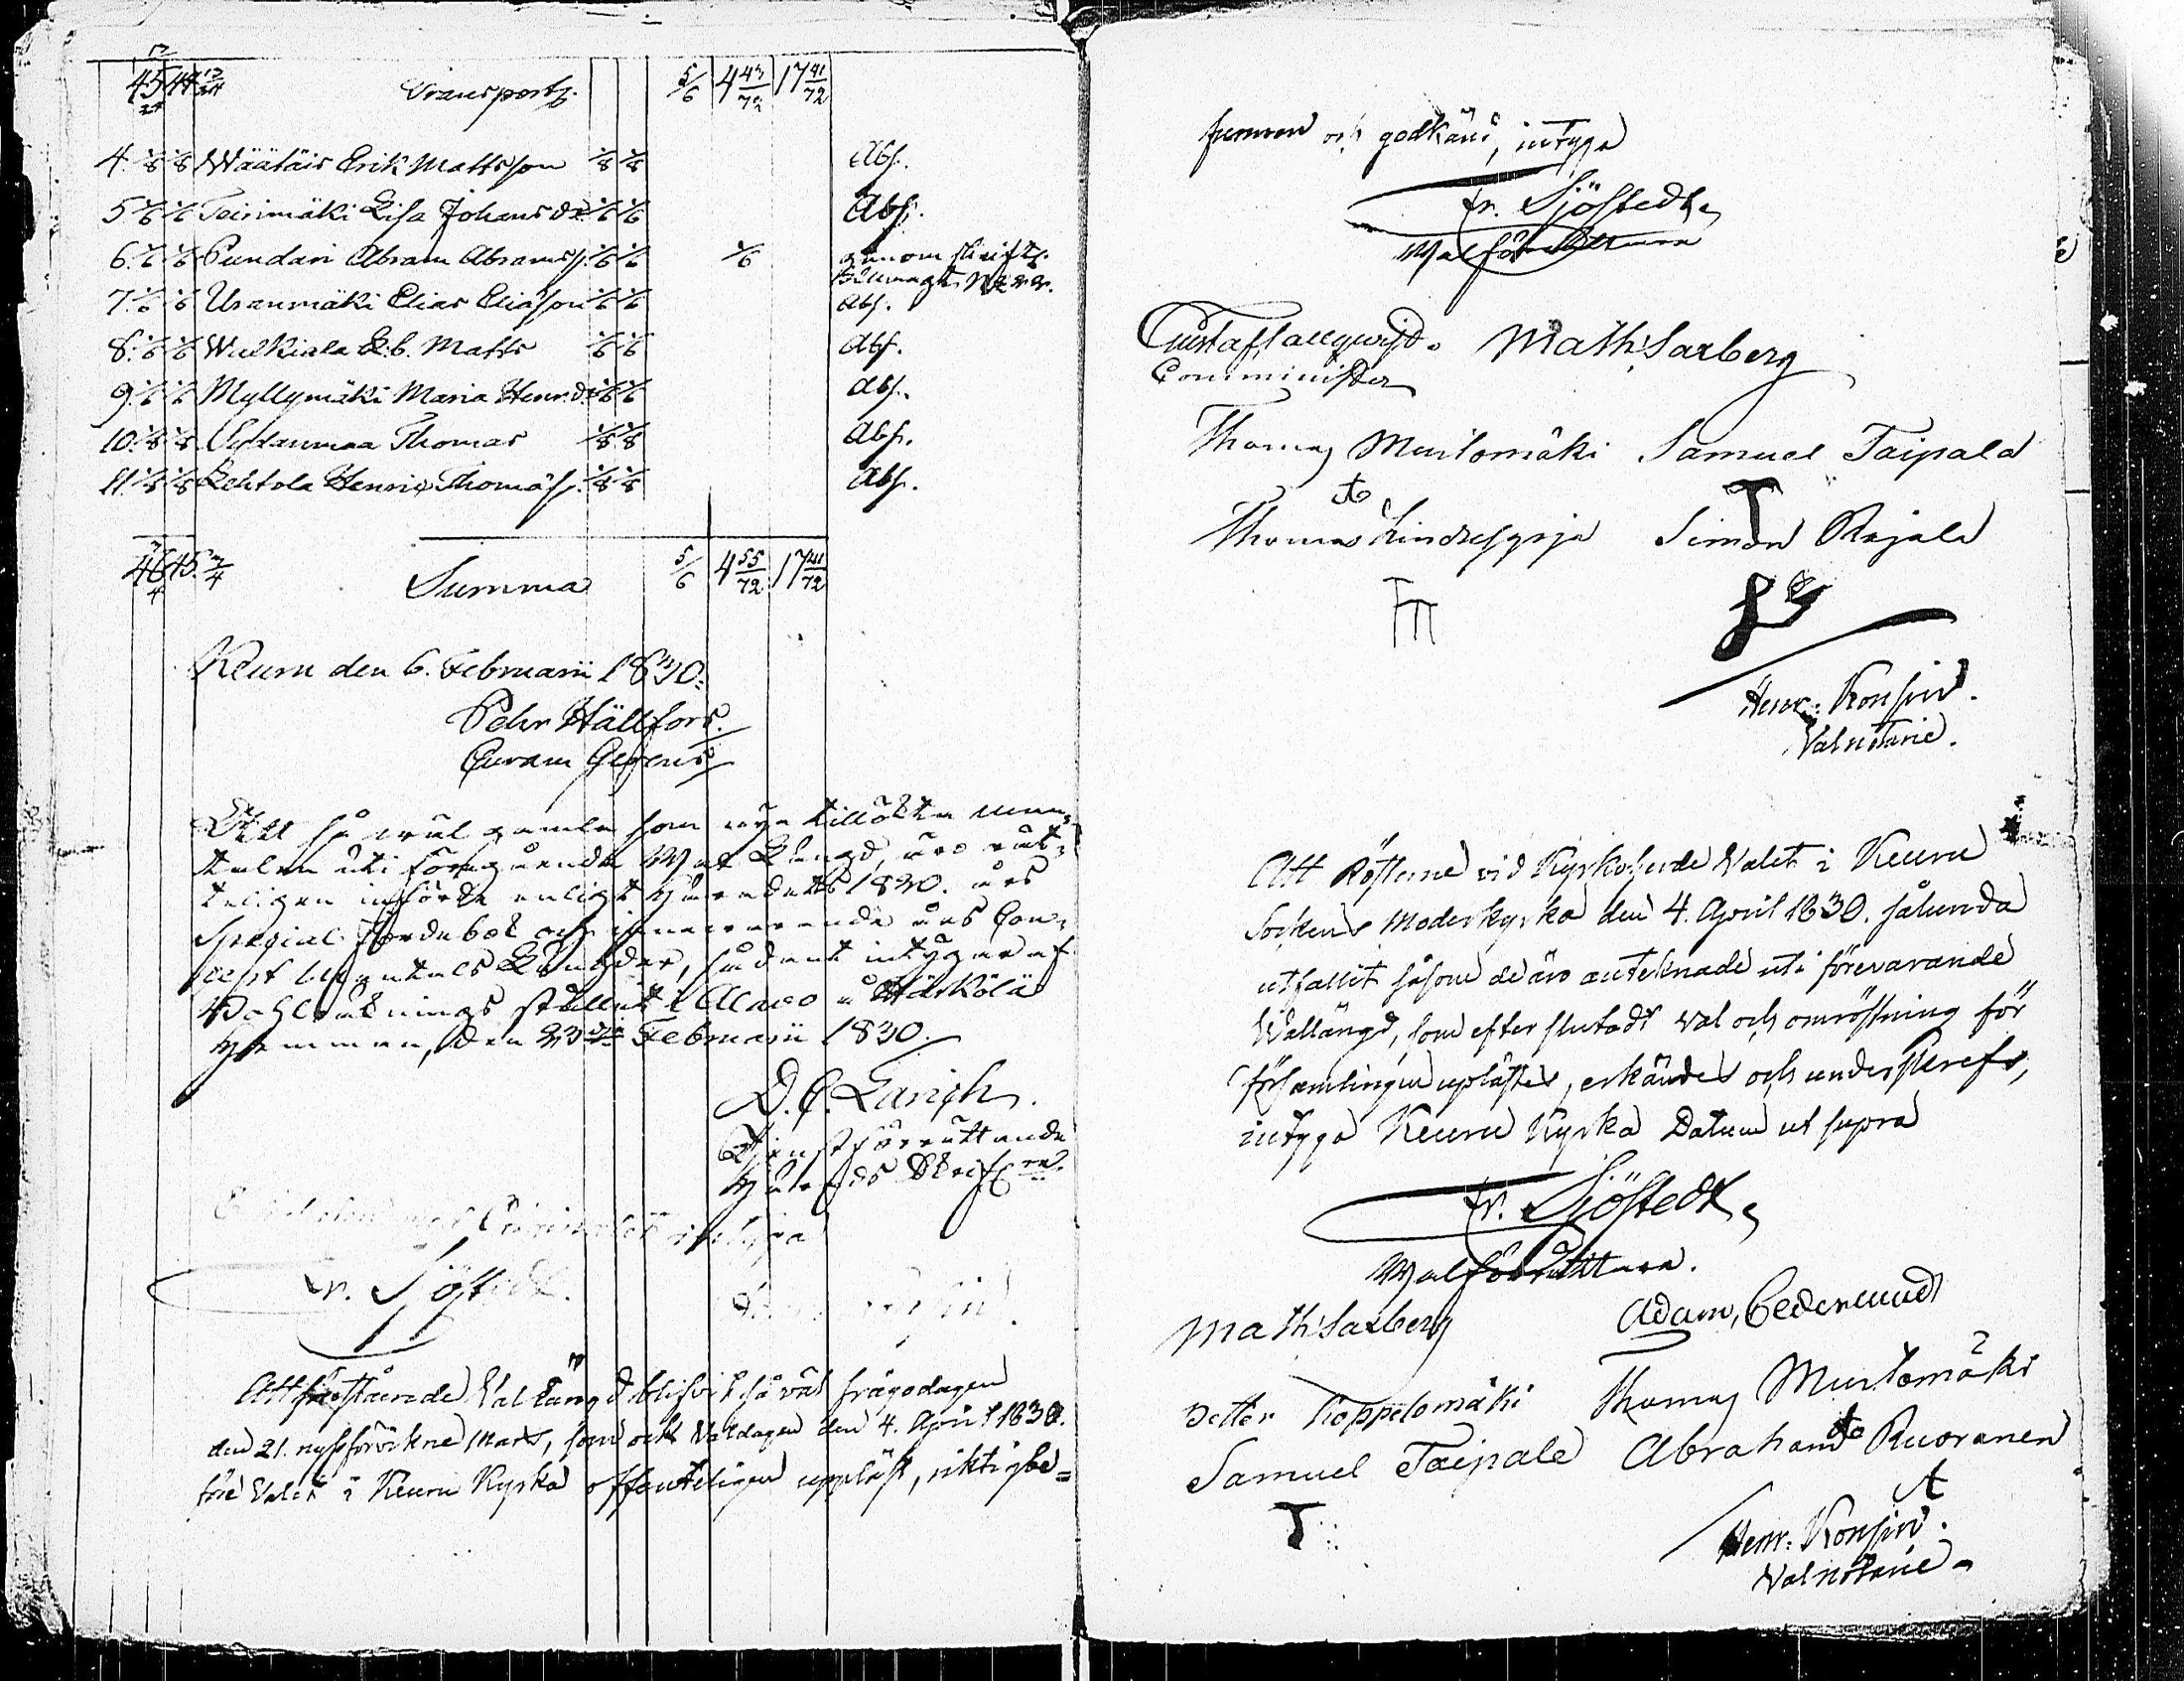 45 17/24 44 17/24 Transport. 5/6 4 43/72 17 41/72
4. 1/8 1/8 Wäätäis Erik Mattsson 1/8 1/8 Abs.
5. 1/6 1/6 Teirimäki Lisa Johansdr. 1/6 1/6 Abs.
6. 1/6 1/6 Pundari Abram Abramss. 1/6 1/6 1/6 genom skriftl.
fullmagt
7. 1/6 1/6 Uranmäki Elias Eliasson 1/6 1/6 Abs.
8. 1/6 1/6 Wulkiala Matts 1/6 1/6 Abs.
9. 1/6 1/6 Myllymäki Maria Henr.dr. 1/6 1/6 Abs.
10. 1/8 1/8 Sydänmaa Thomas 1/8 1/8 Abs.
11. 1/8 1/8 Lehtola Henric Thomass. 1/8 1/8 Abs.
46 3/4 45 3/4 Summa 5/6 4 55/72 17 41/72
Keuru den 6. Februarii 1830.
Pehr Hällfors.
Curam Gerens
Att så wäl gamla som nya tillökta man-
talen uti föregående Wal Längd, äro rik-
teligen införde enligt Häradets 1830. års
Special Jordebok och innewarande års Con-
cept Mantals Längder, sådant intygar af
Uphl
Hemman, den 23dje Februarii 1830.
Tjenstförrättande
Härads Skrifvare.
Fr. Sjöstedt.
Att förestående Vallängd blifvit så väl frågodagen
den 21. nystförvikne Mars, som ock Valdagen den 4. April 1830.
före Valet i Keuru Kyrka offenteligen uppläst, riktig be-
funnen och godkänd, intyga
Fr. Sjöstedt
Walförrättare
Gustaf Tallqvist. Math: Saxberg
Comminister
Thomas Murtomäki Samuel Taipale
Thomas Simon Rajala
Henr: Konsin.
Valnotarie.
Att Rösterne vid Kyrkoherde Valet i Keuru
Sockens Moderkyrka den 4. April 1830. sålunda
utfallit såsom de äro antecknade uti förevarande
Vallängd, som efter slutadt val och omröstning för
församlingen uplästes, erkändes och underskrefs,
intyga Keuru Kyrka Datum ut supra
Fr. Sjöstedt
Walförrättare.
Math: Saxberg Adam Cedermund
Petter Koppelomäki Thomas Murtomäki
Samuel Taipale Abraham Ruoranen
Henr: Konsin.
Valnotarie